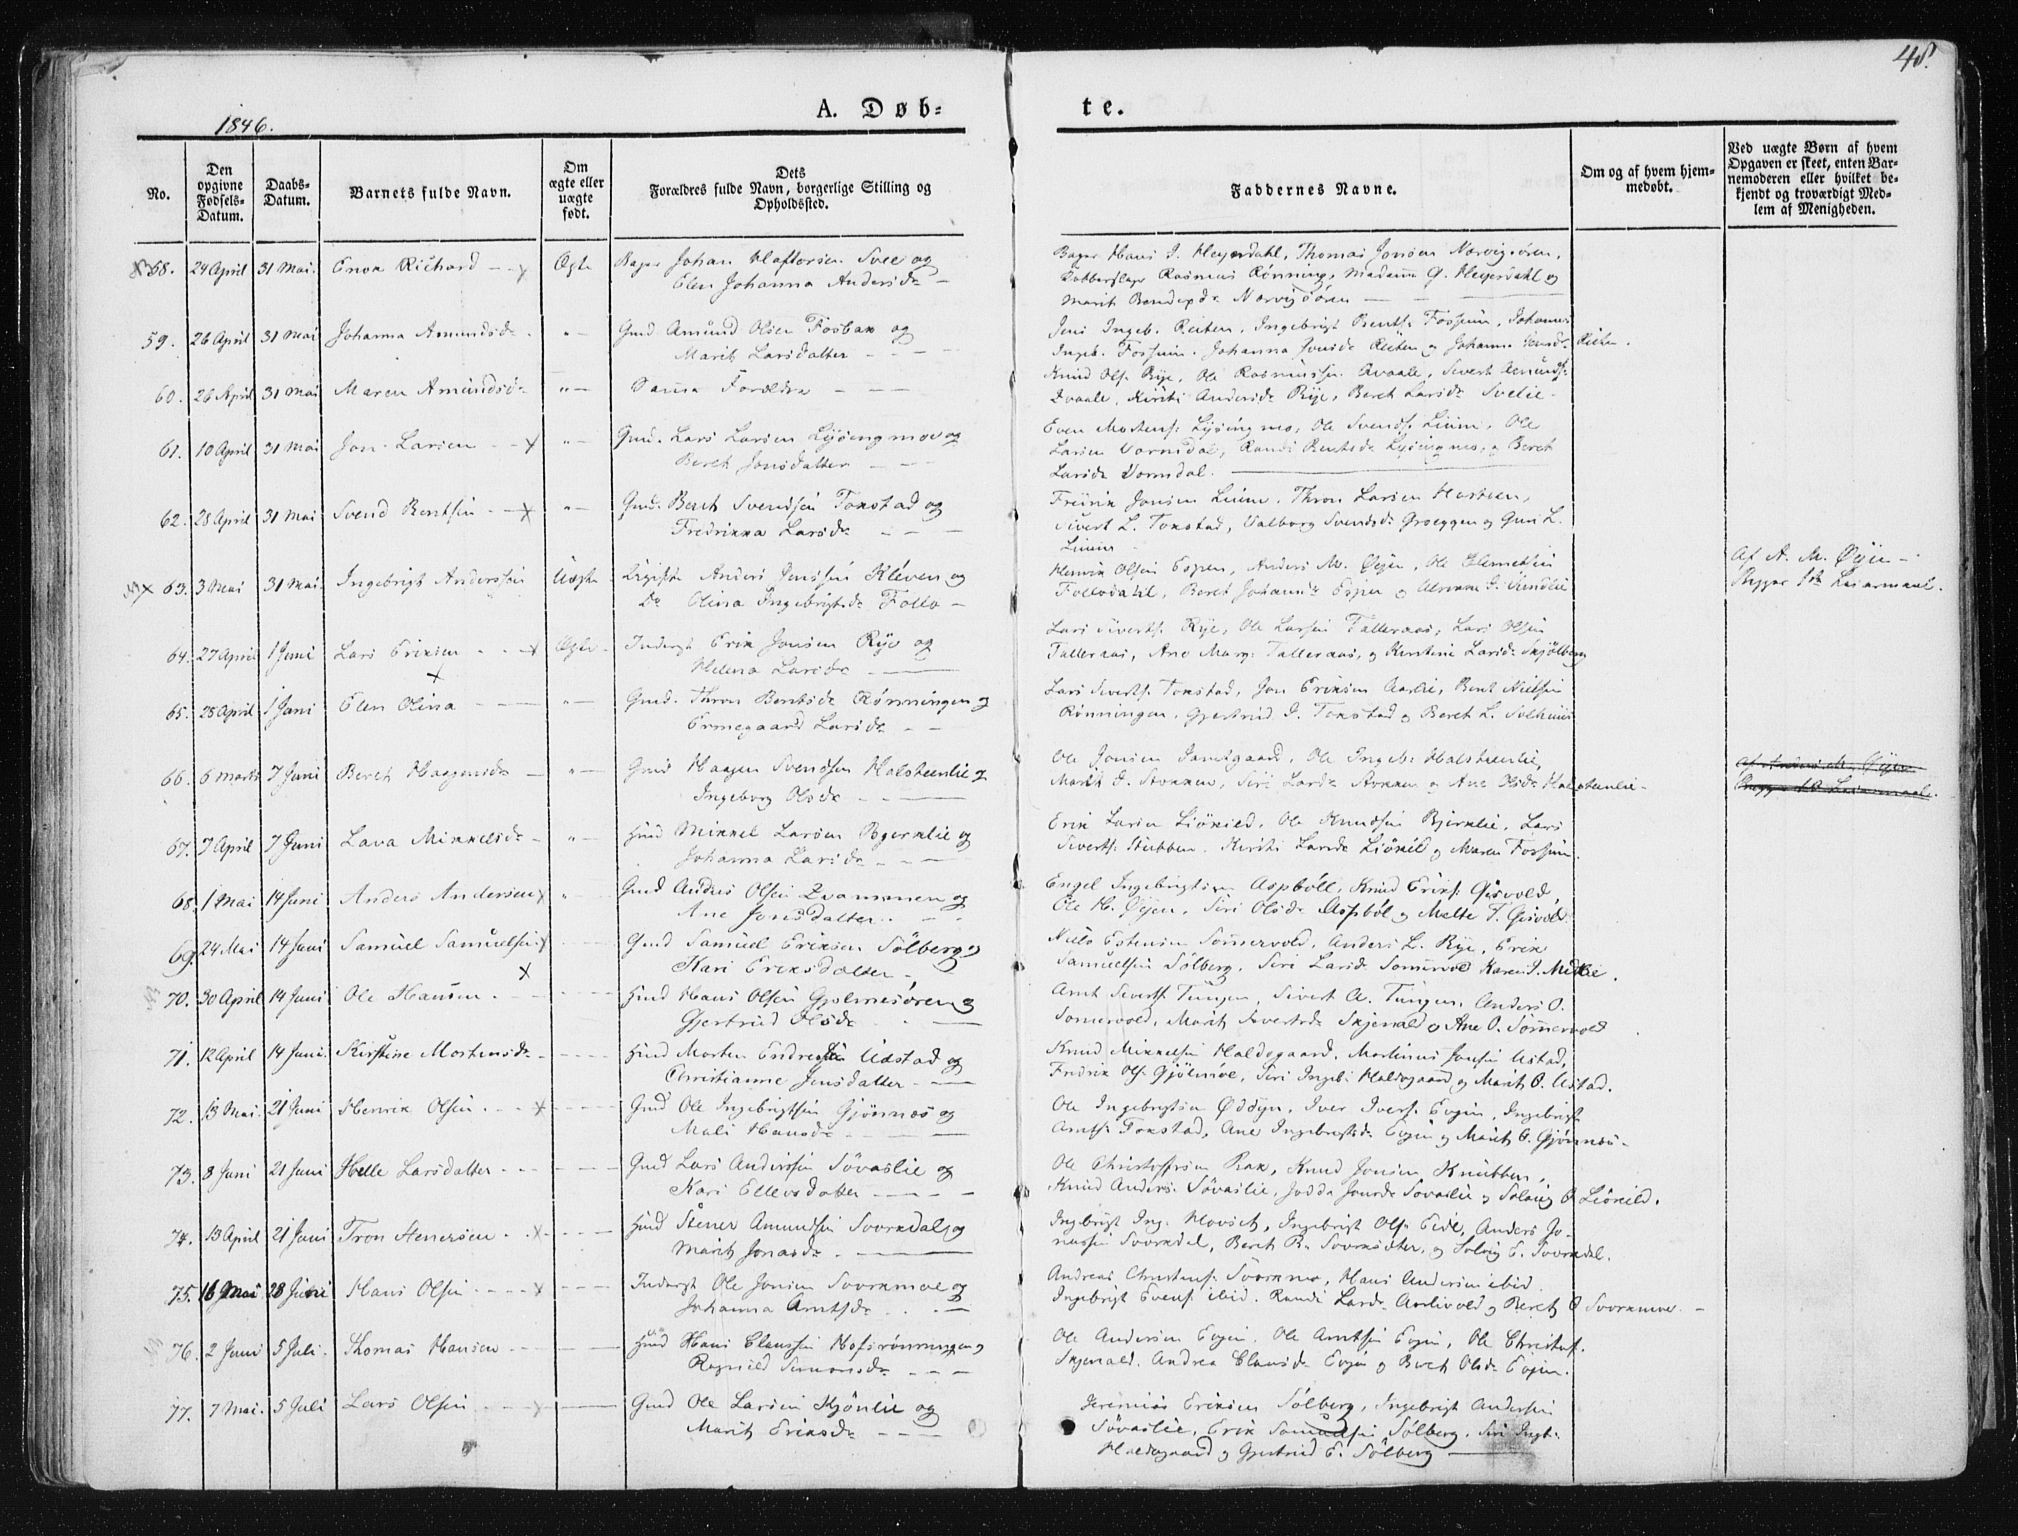 48.
1846.
A. Døb-
te.
No.
Den opgivne Fødsels-Datum.
Daabs-Datum.
Barnets fulde Navn.
Om ægte eller uægte født.
Dets Forældres fulde Navn, borgerlige Stilling og Opholdssted.
Faddernes Navne.
Om og af hvem hjem-medøbt.
Ved uægte Børn af hvem Opgaven er skeet, enten Bar-nemoderen eller hvilket be-kjendt og troværdigt Med-lem af Menigheden.
58. 24 April 31 Mai. Enok Richard Ægte Johan Haftorsen Svee og
Elen Johanna Andersdr
Bager Hans J. Heyerdahl, Thomas Jonsen Norvigsøren,
Kobberslager Rasmus Rønning, Madam G. Heyerdahl og
Marit Bendixdr Norvigsøren
59. 26 April 31 Mai Johanna Amundsdr Gmd Amund Olsen Fosbak og
Marit Larsdatter
Jens Ingeb. Reiten, Ingebrigt Bents. Fossum, Johannes
Ingeb. Fossum. Johanna Jensdr Reiten og Johanna Jensdr Reiten.
60. 26 April 31 Mai Maren Amundsdr Samme Forældre
Knud Ols. Rye, Ole Rasmussen Qvaale, Sivert Amunds.
Qvaale, Kirsti Andersdr Rye, Beret Larsdr Svelie
61. 10 April 31 Mai Jon Larsen Gmd. Lars Larsen Lysengmoe og
Beret Jonsdatter
Even Mortens. Lysingmo, Ole Svends. Lium, Ole
Larsen Vormdal, Randi Bentsdr Lysingmo, og Beret
Larsdr Vormdal.
62. 28 April 31 Mai Svend Bentsen Gmd. Bent Svendsen Tokstad og
Fredrikka Larsdr
Fredrik Jonsen Lium, Thron Larsen Hosteen,
Sivert L. Tokstad, Valborg Svendsdr Groeggen og Guri L.
Lium
63. 3 Mai 31 Mai. Ingebrigt Anderssen Uægte Anders Jenssen Kleven og
Do Olina Ingebrigtsdr Follo
Henrik Olsen Espen, Anders M. Øyen, Ole Clemetsen
Follodahl, Beret Johannsdr Espen og
Af A. M. Øyen
Begges 1ste Leiermaal.
64. 27 April 1 Juni Lars Eriksen Ægte Inderst Erik Jonsen Rye og
Helena Larsdr
Lars Siverts. Rye, Ole Larsen Talleraas, Lars Olsen
Talleraas, Ane Marg. Talleraas, og Kerstine Larsdr Skjølberg
65. 28 April 1 Juni Elen Olina Gmd. Thron Bentsen Rønningen og
Ermegaard Larsdr
Lars Siverts. Tokstad, Jon Eriksen Aarlie, Bent Nielsen
Rønningen, Gjertrud J. Tokstad og Beret L. Solheim
66. 6 Marts 7 Juni Beret Haagensdr Gmd Haagen Svendsen Halsteenlie og
Ingeborg Olsdr
Ole Jonsen Jamtgaard, Ole Ingeb. Halsteenlie,
Marit J. Stokken, Siri Larsdr Stokken og Ane Olsdr Halsteenlie
67. 7 April 7 Juni Lava Mikkelsdr Huusmd Mikkel Larsen Bjerklie og
Johanna Larsdr
Erik Larsen Liøkild, Ole Knudsen Bjerklie, Lars
Siverts. Stubben, Kirsti Larsdr Liøkild og Maren Fossum.
68. 1 Mai 14 Juni Anders Andersen Gmd Anders Olsen Kvammen og
Ane Jonsdatter
Engel Ingebrigtsen Aspbøll, Knud Eriks. Gisvold,
Ole H. Øyen, Siri Olsdr Aspbøl og Malte T. Gisvold
69. 24 Mai 14 Juni Samuel Samuelsen Gmd Samuel Eriksen Sølberg og
Kari Eriksdatter
Niels Estensen Somervold, Anders L. Rye, Erik
Samuelsen Sølberg, Siri Larsdr Somervold Karen J. Midlie.
70. 30 April 14 Juni Ole Hansen Hmd Hans Olsen Gjølmesøren og
Gjertrud Olsdr
Amt Siverts. Tungen, Sivert A. Tungen, Anders O.
Somervold, Marit Sivertsdr Skjenald og Ane O. Sommervold
71. 12 April 14 Juni. Kirstine Mortensdr Hmd Morten Endresen Ustad og
Christianne Jensdatter
Knud Mikkelsen Haldogaard, Martinus Jonsen Ustad,
Fredrik Ols. Gjølmoe, Siri Ingeb. Haldogaard og Marit O. Ustad.
72. 13 Mai. 21 Juni Henrik Olsen Gmd Ole Ingebrigtsen Gjønnes og
Mali Hansdr
Ole Ingebrigtsen Øddyn, Iver Ivers. Evjen, Ingebrigt
Amts. Tokstad, Ane Ingebrigtsdr Evjen og Marit O. Gjønnes
73. 8 Juni 21 Juni Helle Larsdatter Gmd Lars Anderssen Søvaslie og
Kari Ellevsdatter
Ole Christophersen Bak, Knud Jonsen Knubben,
Knud Anders. Søvaslie, Jodda Jonsdr Sovaslie og Solvig O Liøkild.
74. 13 April 21 Juni Tron Stenersen Hmd Stener Amundsen Svorkdal og
Marit Jonasdr
Ingebrigt Ing. Hovset, Ingebrigt Ols. Eide, Anders Jo-
nassen Svorkdal, Beret B. Svorksæter, og Solvig E. Svorkdal.
75. 16 Mai 28 Juni Hans Olsen Inderst Ole Jonsen Svorkmoe og
Johanna Amtsdr
Andreas Christens. Svorkmo, Hans Andersen ibid.
Ingebrigt Evens. ibid. Randi Larsdr Aarlivold og Beret O Svorkmoe.
76. 2 Juni 5 Juli. Thomas Hansen Hmd Hans Claussen Hofsrønningen og
Ragnild Simonsdr
Ole Andersen Evjen, Ole Amtsen Evjen, Ole Christof.
Skjenald, Andrea Clausdr Evjen og Beret Olsdr Evjen.
77. 7 Mai. 5 Juli Lars Olsen Gmd Ole Larsen Hjønlie og
Marit Eriksdr
Jeremias Eriksen Sølberg, Ingebrigt Andersen
Søvaslie, Erik Samuelsen Sølberg, Siri Ingb.
Haldogaard og Gjertrud E. Sølberg